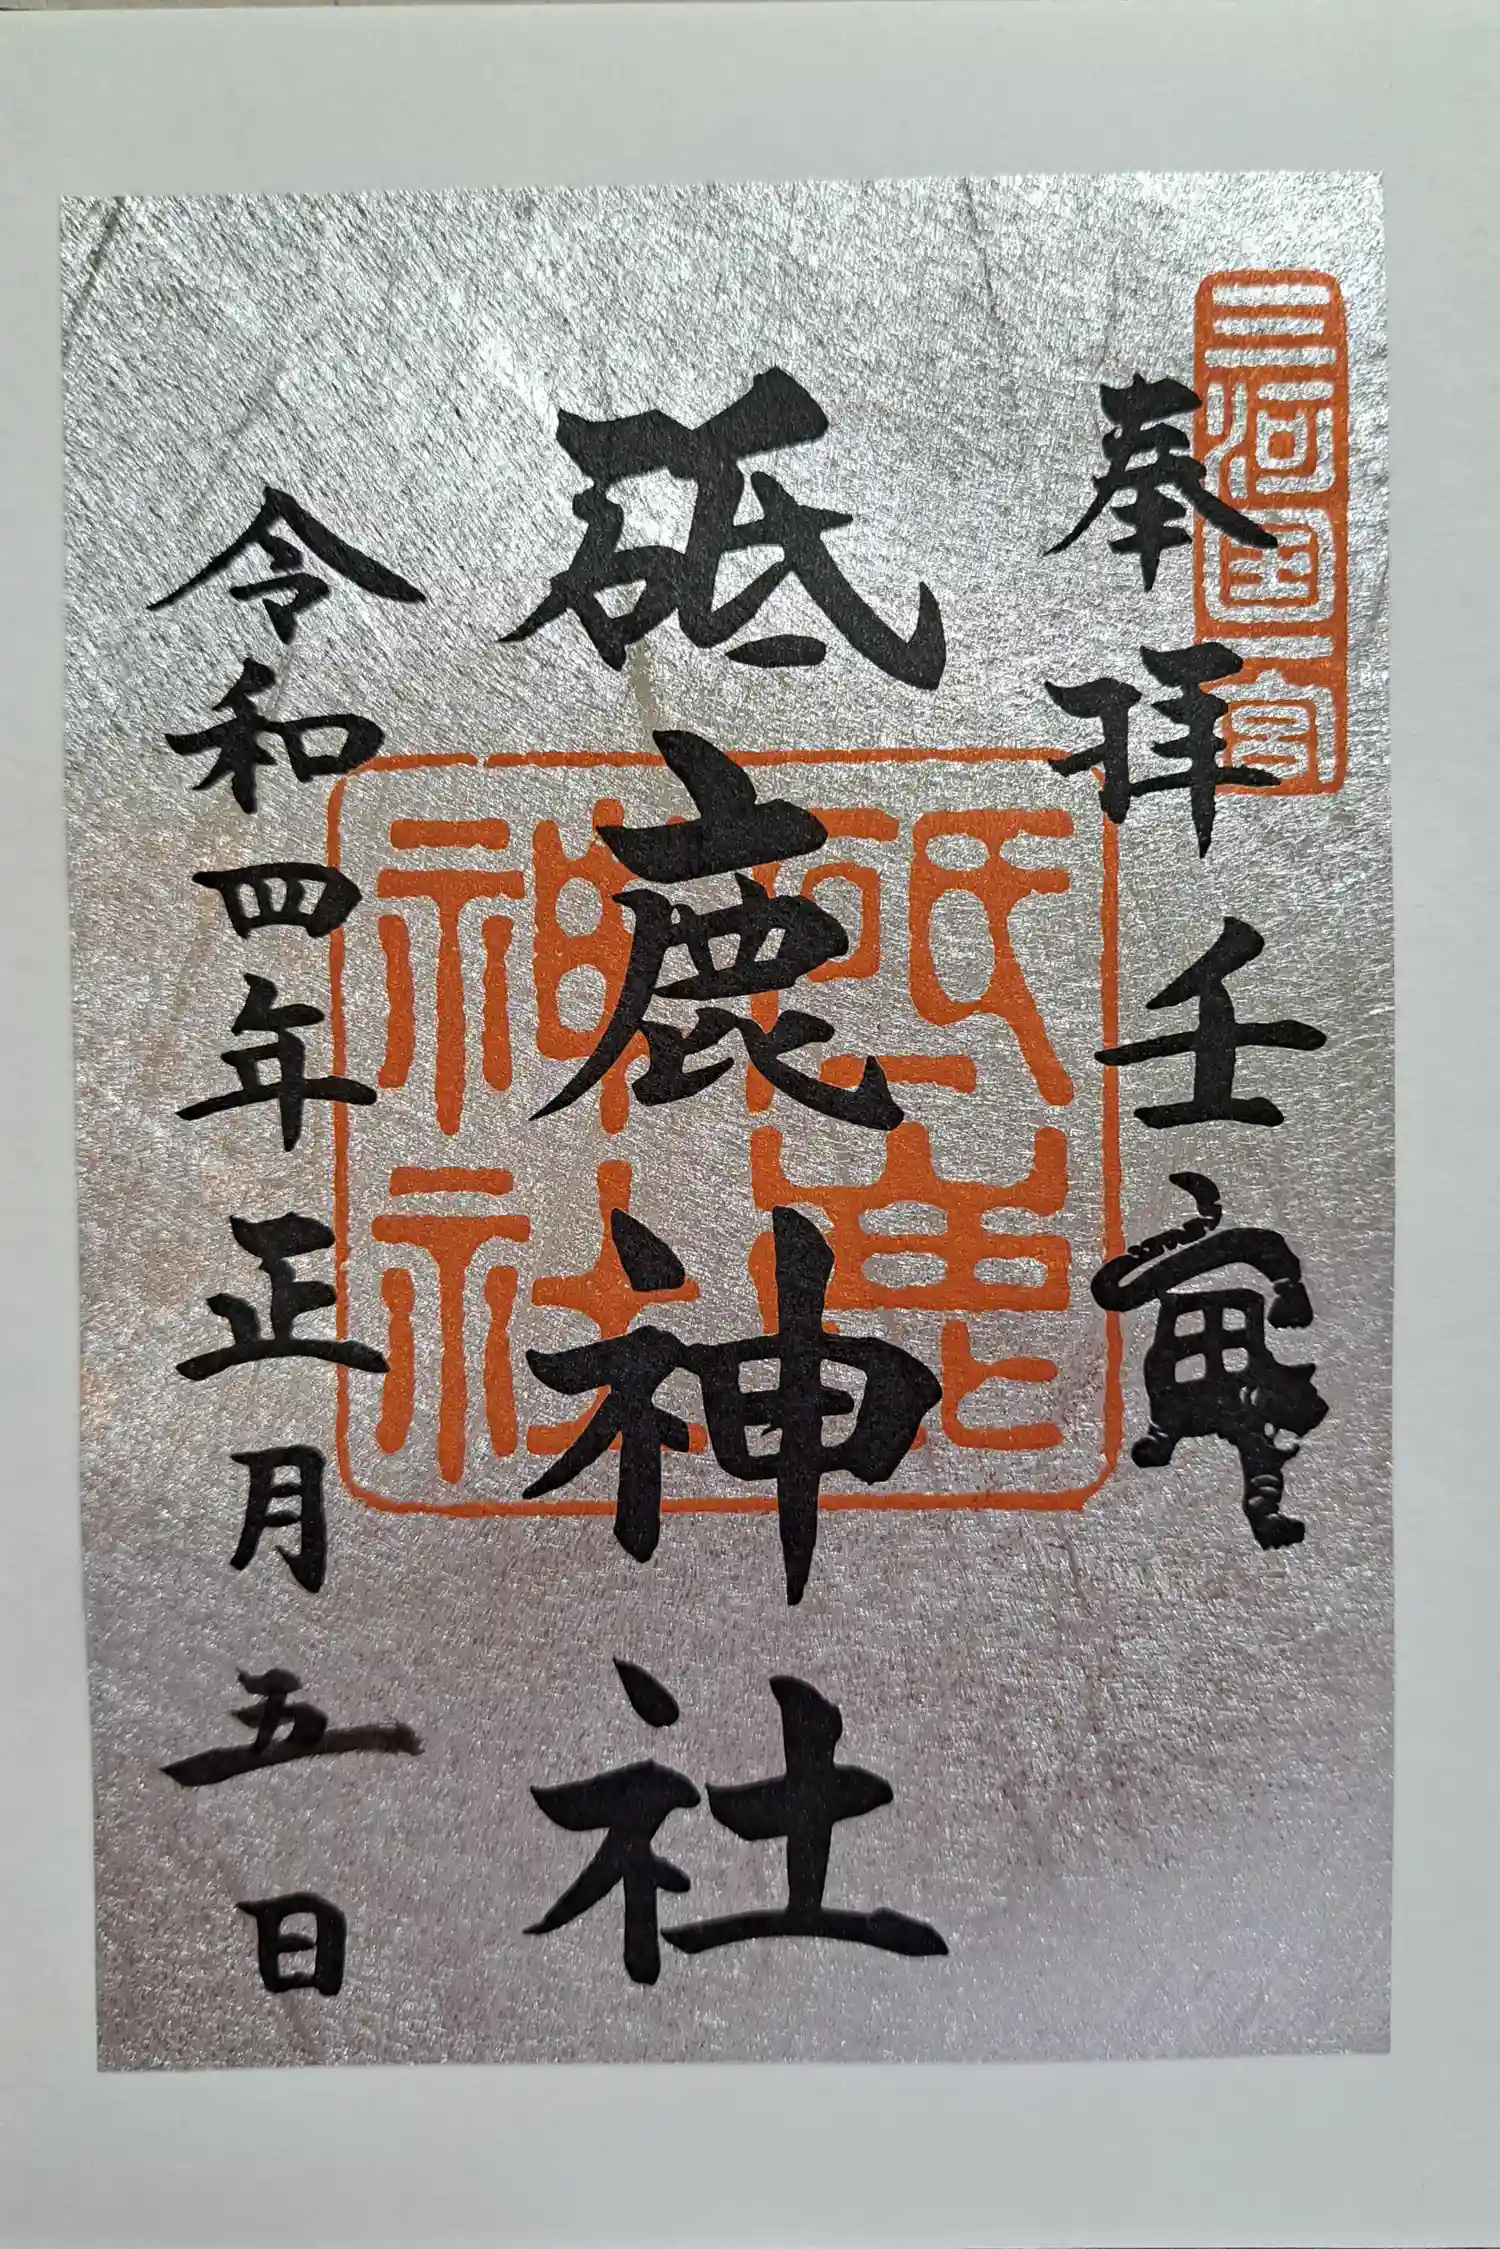 三河国一宮
奉拝壬寅
砥鹿神社
砥鹿神社
令和四年正月五日